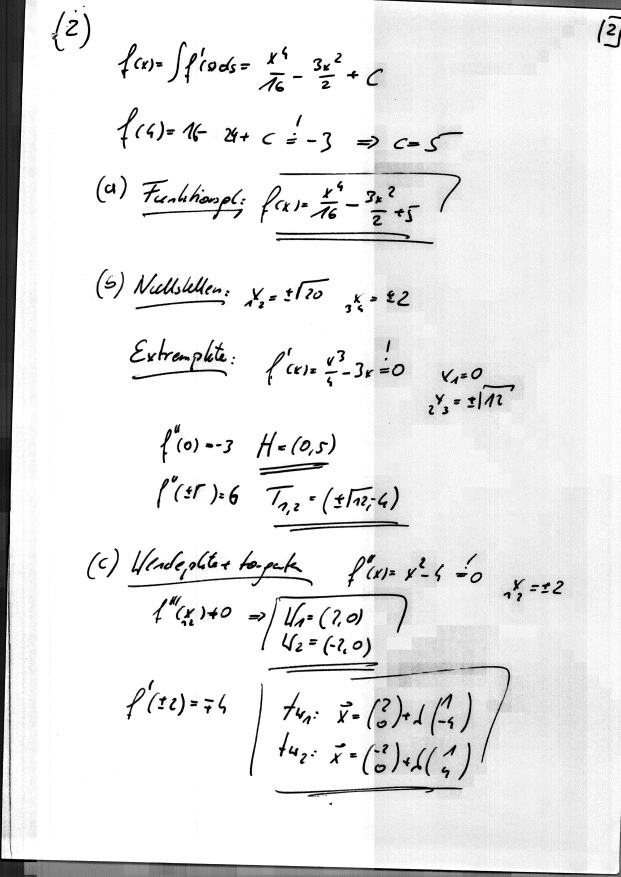 (2) [2]
f(x) = ∫f'(x)ds = x⁴/16 - 3x²/2 + C
f(4) = 16 - 24 + C =! -3 ⇒ C = 5
(a) Funktionsgl.: f(x) = x⁴/16 - 3x²/2 + 5
(b) Nullstellen: x₁,₂ = ±√20 x₃,₄ = ±2
Extrempkte: f'(x) = x³/4 - 3x =! 0 x₁ = 0
₂x₃ = ±√12
f''(0) = -3 H = (0,5)
f''(±√ ) = 6 T₁,₂ = (±√12, -4)
(c) Wendepkte + tangenten f''(x) = x² - 4 =! 0 x₁,₂ = ±2
f'''(x₁,₂) ≠ 0 ⇒ W₁ = (2,0)
W₂ = (-2,0)
f'(±2) = ∓4 tw₁: x⃗ = (2 0) + λ(1 -4)
tw₂: x⃗ = (-2 0) + λ(1 4)